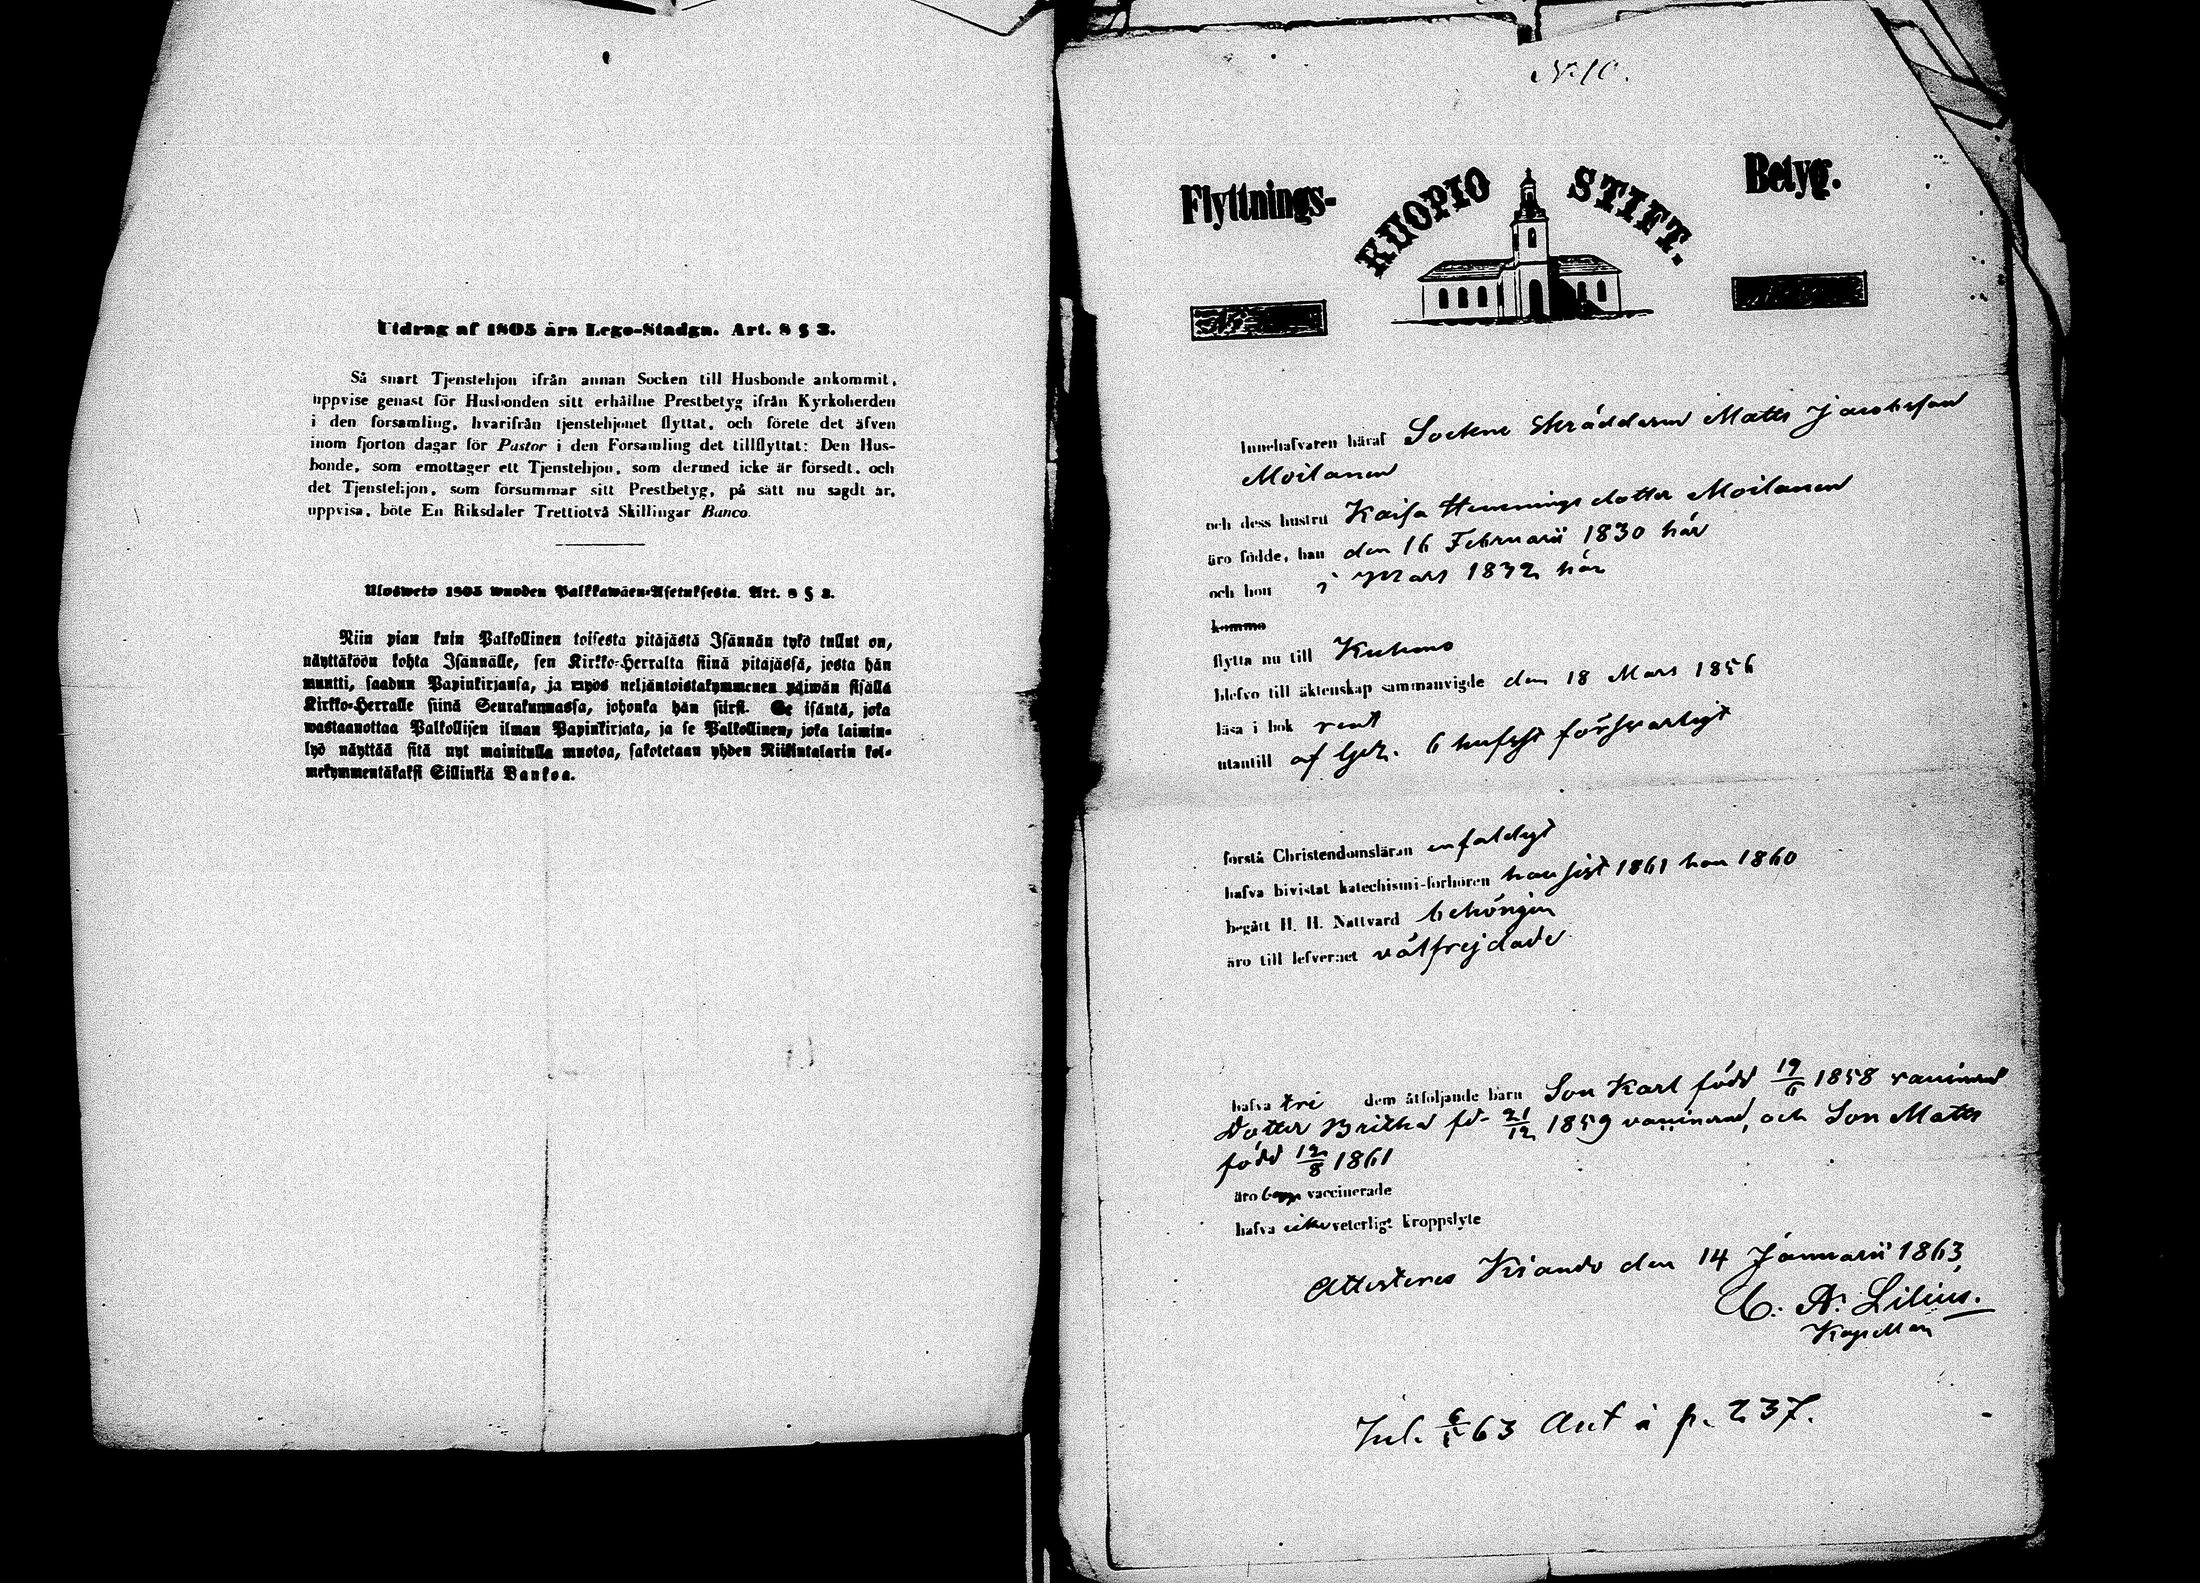 Utdrag af 1805 års Lego-Stadga. Art. 8 § 3.
Så snart Tjenstehjon ifrån annan Socken till Husbonde ankommit,
uppvise genast för Husbonden sitt erhållne Prestbetyg ifrån Kyrkoherden
i den forsamling, hvarifrån tjenstehjonet flyttat, och förete det äfven
inom fjorton dagar för Pastor i den Forsamling det tillflyttat: Den Hus-
bonde, som emottager ett Tjenstehjon, som dermed icke är försedt, och
det Tjenstehjon, som försummar sitt Prestbetyg, på sätt nu sagdt är,
uppvisa, böte En Riksdaler Trettiotvå Skillingar Banco.
Ulosweto 1805 wuoden Palkkawäen-Asetuksesta. Art. 8 § 3.
Niin pian kuin Palkollinen toisesta pitäjästä Isännän tykö tullut on,
näyttäköön kohta Isännälle, sen Kirkko-Herralta siinä pitäjässä, josta hän
muutti, saadun Papinkirjansa, ja myös neljäntoistakymmenen päiwän sisällä
Kirkko-Herralle siinä Seurakunnassa, johonka hän siirsi. Se isäntä, joka
wastaanottaa Palkollisen ilman Papinkirjata, ja se Palkollinen, joka laimin-
lyö näyttää sitä nyt mainitulla muotoa, sakotetaan yhden Riikintalarin kol-
mekymmentäkaksi Sillinkiä Bankoa.
N:10.
Flyttnings- KUOPIO STIFT. Betyg.
Innehafvaren häraf Sockne Skräddaren Matts Jacobsson
Moilanen
och dess hustru Kaisa Hemmings dotter Moilanen
äro födde, han den 16 Februarii 1830 här
och hon i Mars 1832 här
komma
flytta nu till Kuhmo
blefvo till äktenskap sammanvigde den 18 Mars 1856
läsa i bok rent
utantill af 6 hufvst försvarligt
förstå Christendomsläran enfaldigt
hafva bivistat katechismi-förhören han sist 1861 hon 1860
begått H. H. Nattvard behörigen
äro till lefvernet välfrejdade
hafva tre dem åtföljande barn Son Karl född 19/6 1858 vaccinerad
Dotter Britha fd. 21/12 1859 vaccinerad, och Son Matts
född 12/8 1861
äro vaccinerade
hafva icke veterligt kroppslyte
Attesteras Kiando den 14 Januarii 1863,
C. A. Lilius.
Kapellan
63 Ant å p. 237.